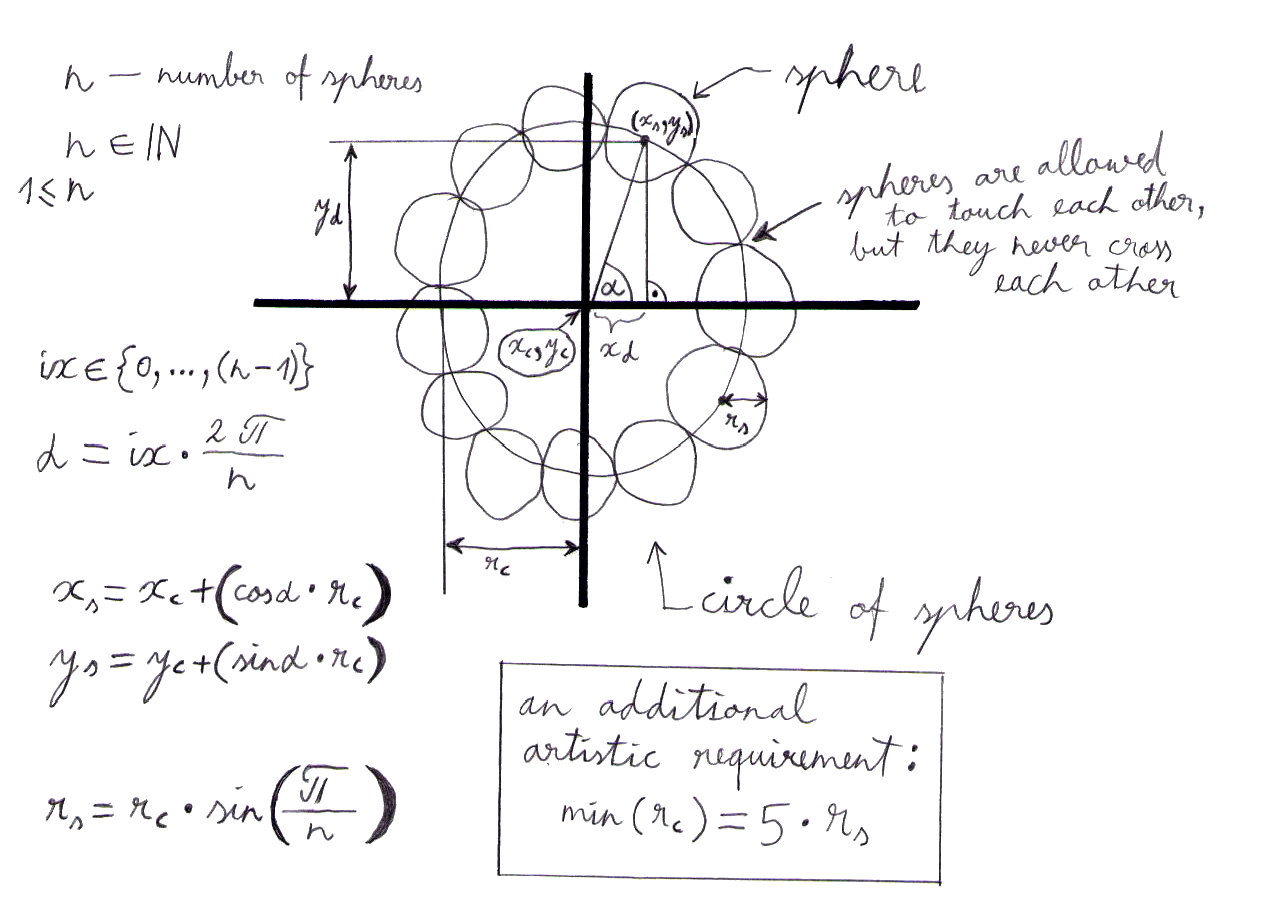 n — number of spheres
n ∈ ℕ
1 ≤ n
sphere
(xₛ, yₛ)
spheres are allowed
to touch each other,
but they never cross
each other
y_d
α
x_c, y_c
x_d
rₛ
ix ∈ {0, ..., (n-1)}
α = ix · 2π/n
r_c
circle of spheres
xₛ = x_c + (cosα · r_c)
yₛ = y_c + (sinα · r_c)
rₛ = r_c · sin(π/n)
an additional
artistic requirement:
min(r_c) = 5 · rₛ